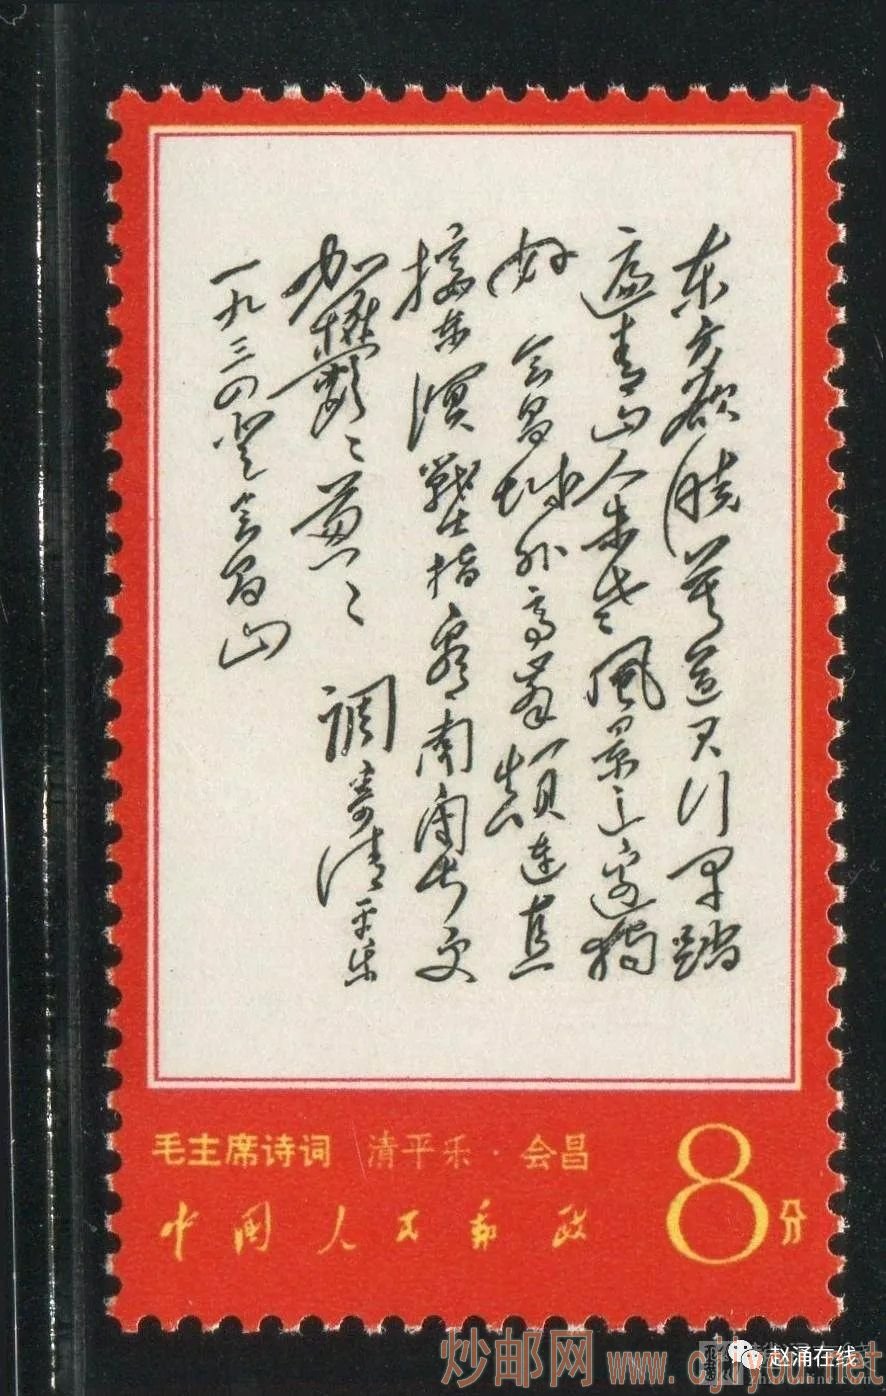 东方欲晓莫道君行早踏
遍青山人未老風景这边独
好 会昌城外高峯颠连直
接东溟戰士指看南粤更
加鬱〻葱〻 调寄清平乐
一九三四登会昌山
毛主席诗词 清平乐·会昌
中国人民邮政
8分
炒邮网
赵涌在线